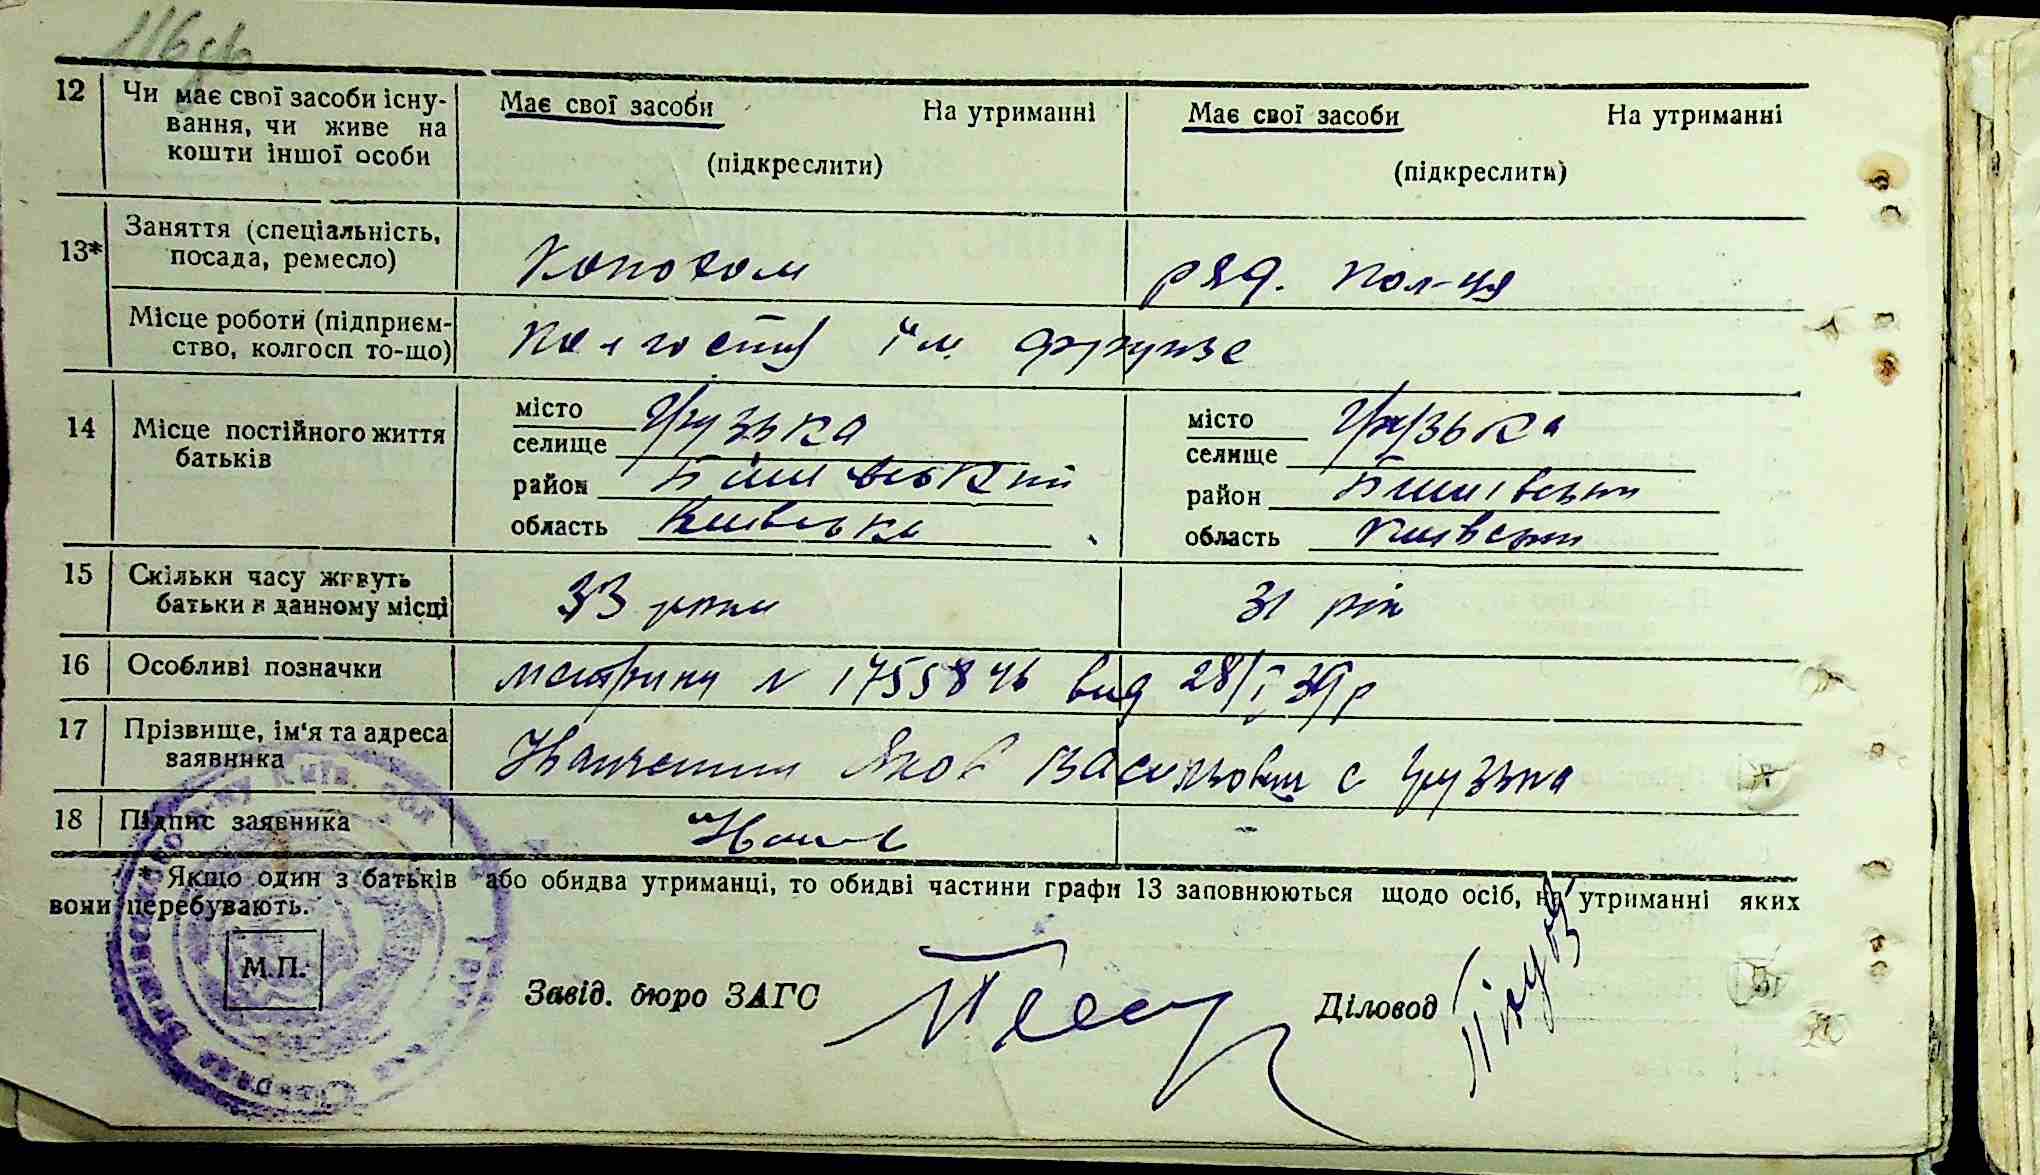 116
12 Чи має свої засоби існу- Має свої засоби На утриманні Має свої засоби На утриманні
вання, чи живе на
кошти іншої особи (підкреслити) (підкреслити)
13* Заняття (спеціальність,
посада, ремесло) ряд. кол-ця
Місце роботи (підприєм-
ство, колгосп то-що) Колгосп ім Фрунзе
14 Місце постійного життя
батьків
місто Грузька місто Грузька
селище селище
район Бишівський район Бишівський
область Київська область Київська
15 Скільки часу живуть
батьки в данному місці 33 роки 31 рік
16 Особливі позначки метрики № 1755846 вид 28/I 39р
17 Прізвище, ім'я та адреса
заявника Яков Васильович с Грузька
18 Підпис заявника
* Якщо один з батьків або обидва утриманці, то обидві частини графи 13 заповнюються щодо осіб, на утриманні яких
вони перебувають.
М.П.
Завід. бюро ЗАГС Діловод